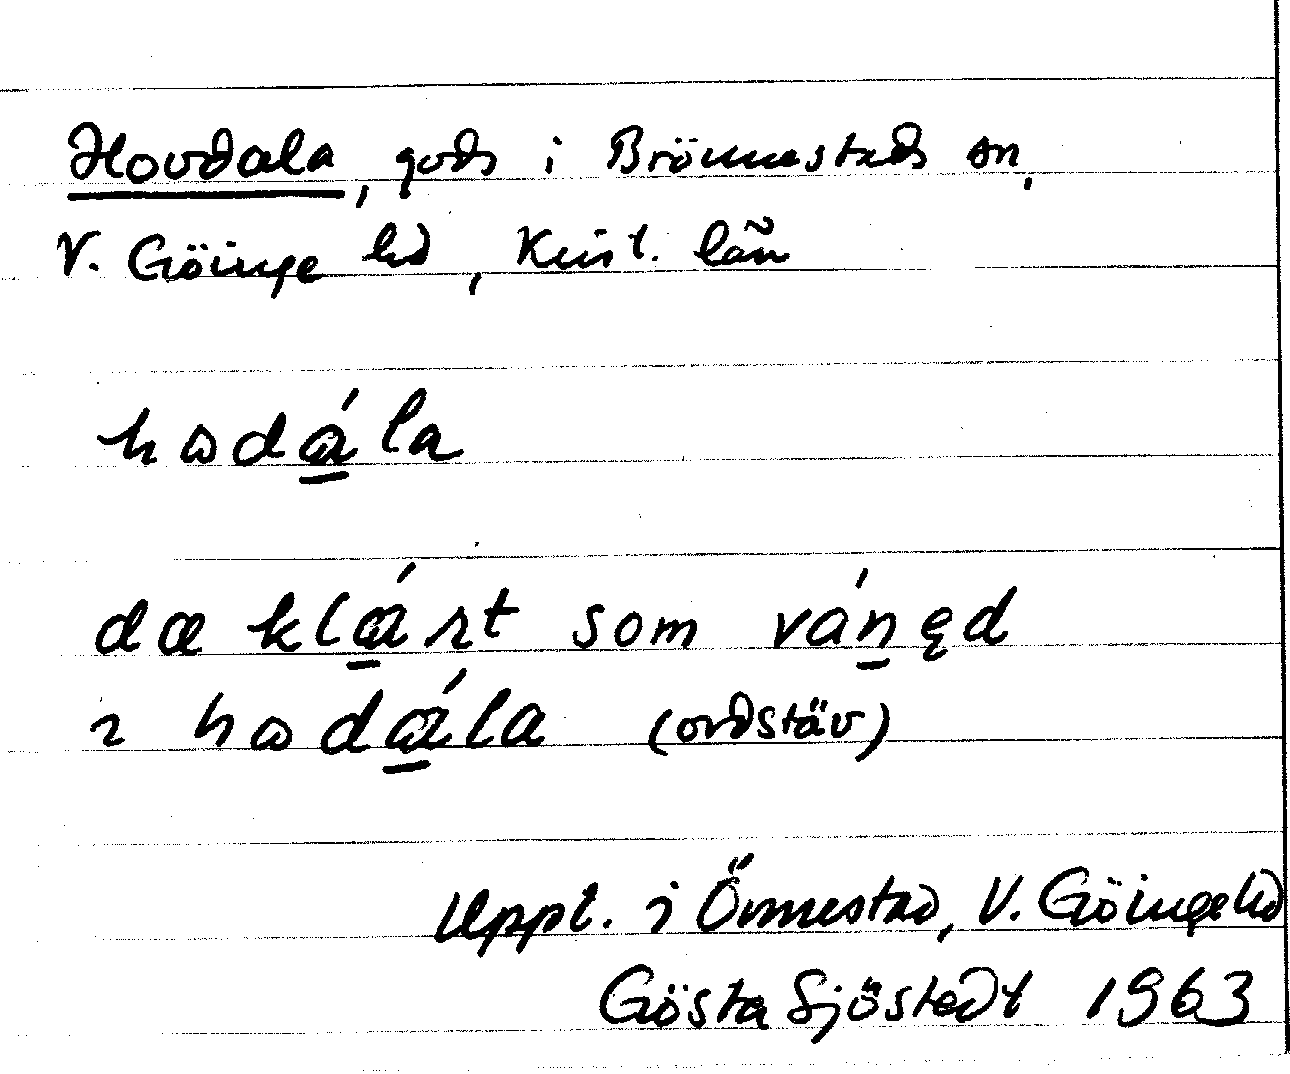 Hovdala, gods i Brönnestads sn,
V. Göinge hd, Krist. län
hɷdɑ́la
dæ klɑ́rt som vánęd
ı hɷdɑ́la (ordstäv)
Uppt. i Önnestad, V. Göinge hd
Gösta Sjöstedt 1963